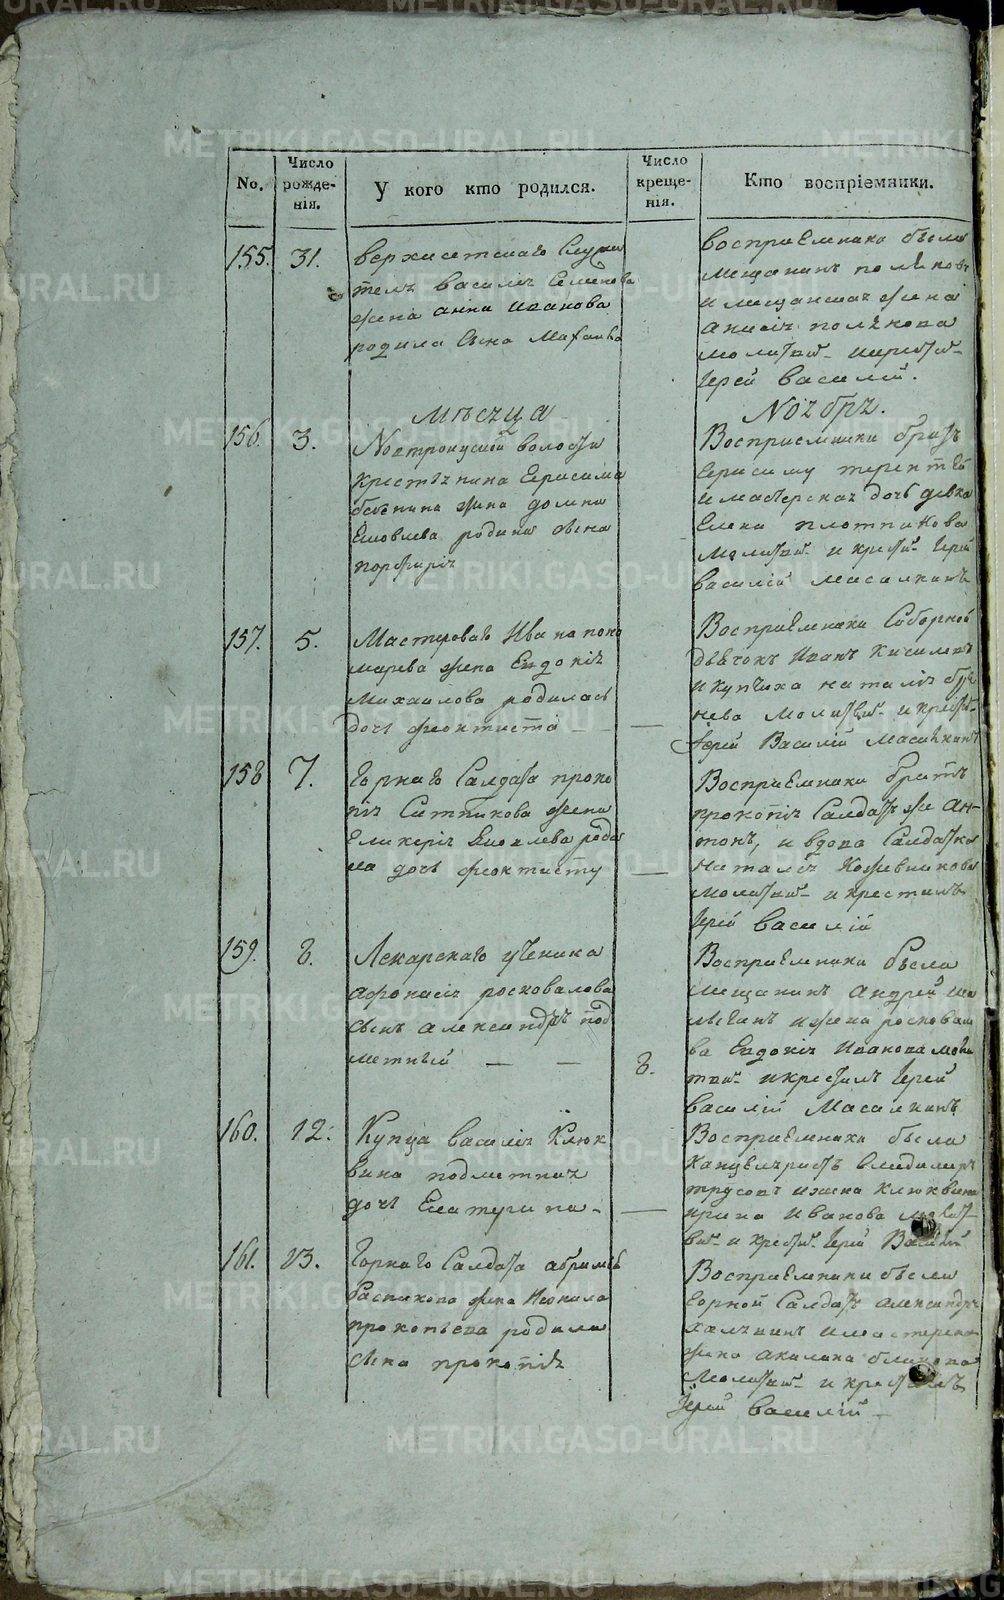 METRIKI.GASO-URAL.RU
No.
Число рожде-нія.
У кого кто родился.
Число креще-нія.
Кто воспріемники.
155.
31.
Верхисетскаго Служи
тель Василіи Семенова
жена анна Иванова
родила Сына Михаила
Воспріемники были
Мещанинъ поляковъ
и мещанская жена
Анисія полякова
молитво- и крести-
Іерей Василій.
Мѣсеца
Ноября.
156.
3.
волости
крестьянина Герасима
жина домна
Яковлева родила сына
порфирія
Воспріемники братъ
Герасиму терентей
и мастерская дочь девка
Елена плотникова
молитв- и крести- Іерей
Василій Масалкинъ
157.
5.
Мастероваго Ивана поно
марева жена Евдокія
Михаилова родилась
дочь феоктиста
Воспріемники Соборной
дьячокъ Иванъ Киселевъ
и купчиха наталія
нева молитв- и крести-
Іерей Василій Масалкинъ
158
7.
Горнаго Салдата проко
пія Ситникова жена
Гликерія Яковлева роди
ла дочь феоктисту
Воспріемники братъ
прокопія Салдатъ же ан-
тонъ, и вдова Салдатка
наталія Кожевникова
молитв- и крестилъ
Іерей Василій
159.
8.
Лекарскаго ученика
афонасія росковалова
сынъ александръ под
метный
8.
Воспріемники были
мещанинъ андрей
и жена росковало
ва Евдокія Иванова моли
тви- и крестилъ Іерей
Василій Масалкинъ
160.
12.
Купца Василія Клюк
вина подметная
дочь Екатерина-
Воспріемники были
Канцеляристъ владимиръ
трусовъ и жена Клюквина
ирина Иванова молит-
ви- и крести- Іерей Василій
161.
23.
Горнаго Салдата абрама
жина Неонила
прокопьева родила
сына прокопія
Воспріемники были
Горной Салдатъ александръ
и мастерска
жена акилина блинова
молитв- и крестилъ
Іерей Василій